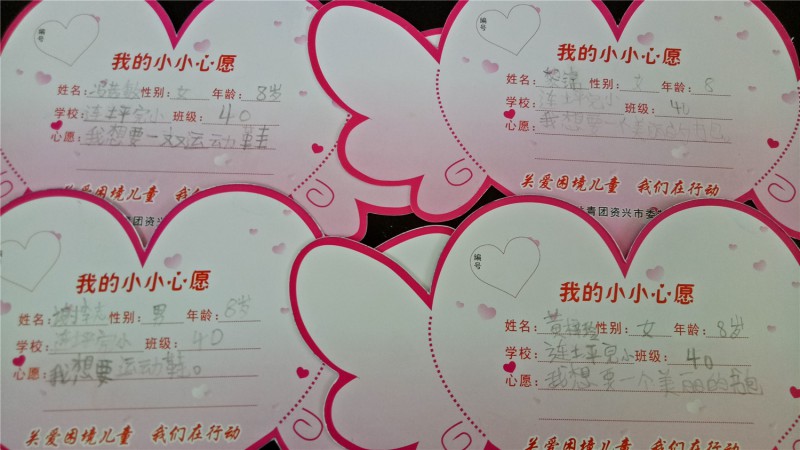 编号
我的小小心愿
姓名: 性别: 女 年龄: 8岁
学校: 连坪完小 班级: 40
心愿: 我想要一双运动鞋
关爱困境儿童 我们在行动
编号
我的小小心愿
姓名: 性别: 女 年龄: 8
学校: 班级: 40
心愿: 我想要一个美丽的书包
关爱困境儿童 我们在行动
青团资兴市委
我的小小心愿
姓名: 性别: 男 年龄: 8岁
学校: 班级: 40
心愿: 我想要运动鞋。
关爱困境儿童 我们在行动
编号
我的小小心愿
姓名: 黄 性别: 女 年龄: 8岁
学校: 班级: 40
心愿: 我想要一个美丽的书包
关爱困境儿童 我们在行动